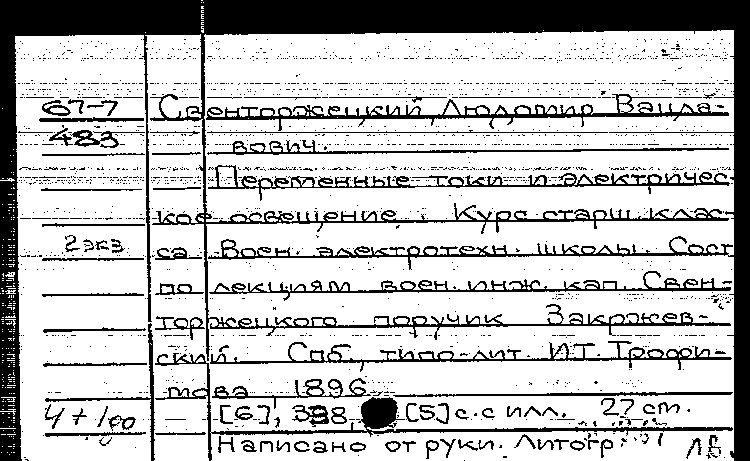 67-7 Свенторжецкий, Людомир Вацла-
483 вович.
Переменные токи и электричес-
кое освещение. Курс старш. клас-
2 экз са Воен. электротехн. школы. Сост
по лекциям воен. инж. кап. Свен-
торжецкого поручик Закржев-
ский. Спб., типо-лит. И.Т. Трофи-
мова 1896
4 + 1 — [6], 398, [5] с. с илл. 27 cm.
Написано от руки. Литогр.